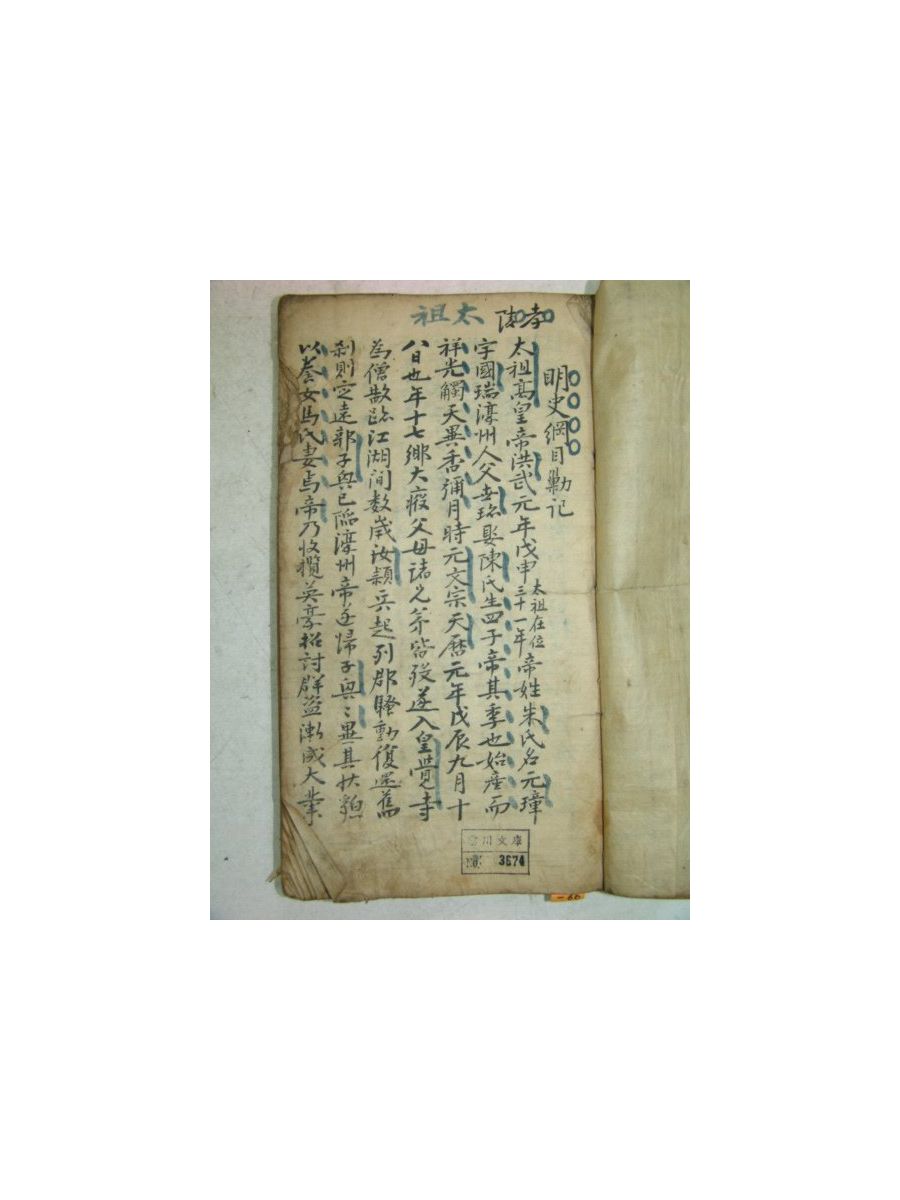 孝陵
太祖
明史綱目勦記
太祖高皇帝洪武元年戊申太祖在位三十一年帝姓朱氏名元璋
字國瑞濠州人父世珍娶陳氏生四子帝其季也始產而
祥光觸天異香彌月時元文宗天曆元年戊辰九月十
八日也年十七鄉大疫父母諸兄弟皆歿遂入皇覺寺
為僧 江湖間數歲汝潁兵起列郡騷動復還舊
刹則定遠郭子興已陷濠州帝 歸子興〻異其狀貌
以養女馬氏妻焉帝乃收攬英豪招討群盜漸成大業
川文庫
No. 3674
-60